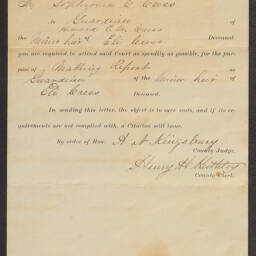 M Sophronia E. Cress
As Guardian of
Emma E. M. Cress
the Minor heir of Eli Cress Deceased,
you are required to attend said Court as speedily as possible, for the pur-
pose of Making Report as
Guardian of the Minor heir of
Eli Cress Deceased.
In sending this letter, the object is to save costs, and if its re-
quirements are not complied with, a Citation will issue.
By order of Hon. A N Kingsbury,
County Judge.
Henry H.
County Clerk.